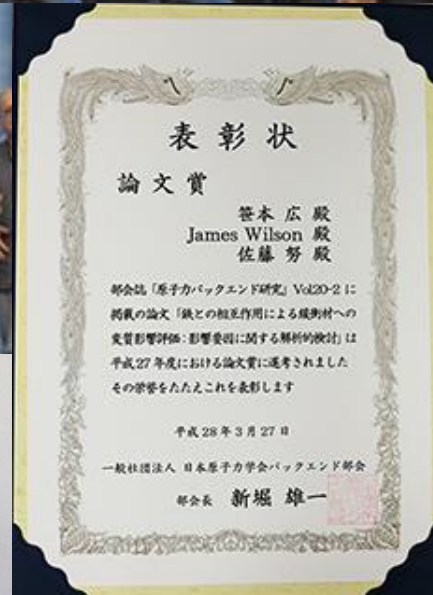 表彰状
論文賞
笹本 広 殿
James Wilson 殿
佐藤 努 殿
部会誌「原子力バックエンド研究」Vol.20-2 に
掲載の論文「鉄との相互作用による緩衝材への
変質影響評価：影響要因に関する解析的検討」は
平成27年度における論文賞に選考されました
その栄誉をたたえこれを表彰します
平成28年3月27日
一般社団法人 日本原子力学会バックエンド部会
部会長 新堀 雄一